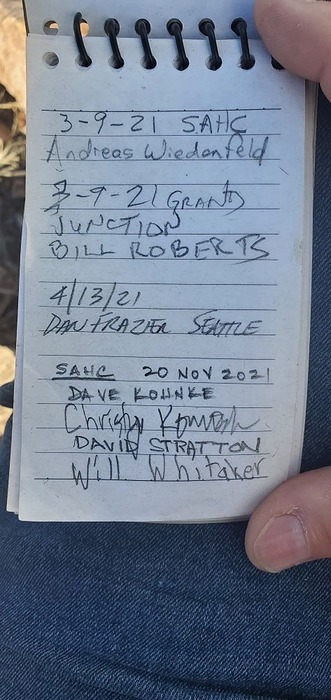 3-9-21 SAHC
Andreas Wiedenfeld
3-9-21 GRAND
JUNCTION
BILL ROBERTS
4/13/21
DAN FRAZIER SEATTLE
SAHC 20 NOV 2021
DAVE KOHNKE
Christy
DAVID STRATTON
Will Whitaker